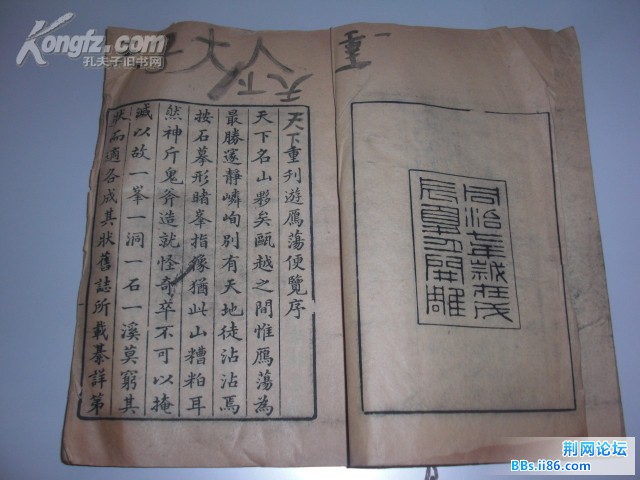 Kongfz.com
孔夫子旧书网
重
一
同治年歲在戊
辰夏開雕
天下
大
子
天下重刊遊鴈蕩便覽序
天下名山夥矣甌越之間惟鴈蕩為
最勝邃靜嶙峋別有天地徒沾沾焉
按石摹形睹峯指像猶此山糟粕耳
然神斤鬼斧造就怪奇卒不可以掩
滅以故一峯一洞一石一溪莫窮其
狀而適各成其狀舊誌所載綦詳第
荆网论坛
BBs.ii86.com